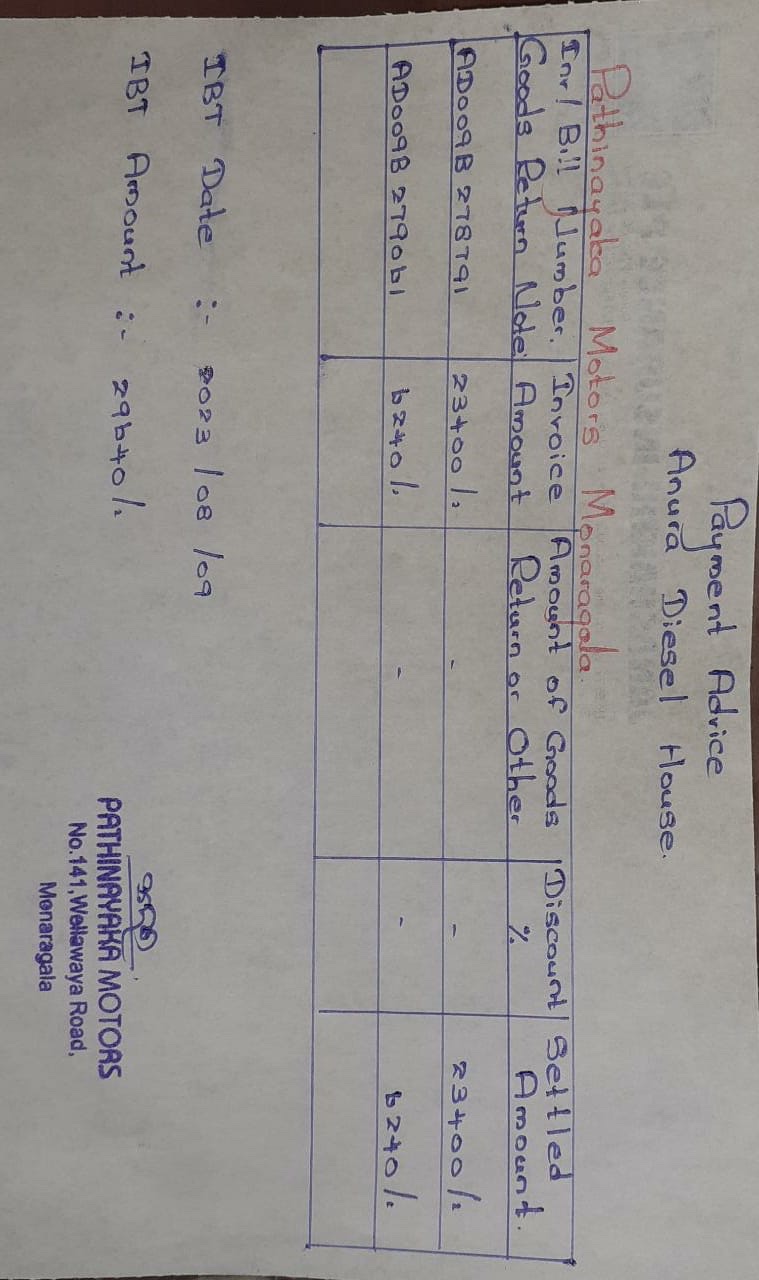 Payment Advice
Anura Diesel House.
Pathinayaka Motors Monaragala.
Inv/Bill Number. Invoice Amount of Goods Discount Settled
Goods Return Note Amount Return or Other % Amount.
AD009B278791 23400/= - - 23400/=
AD009B279061 6240/= - - 6240/=
IBT Date :- 2023/08/09
IBT Amount :- 29640/=
PATHINAYAKA MOTORS
No.141,Wellawaya Road,
Monaragala